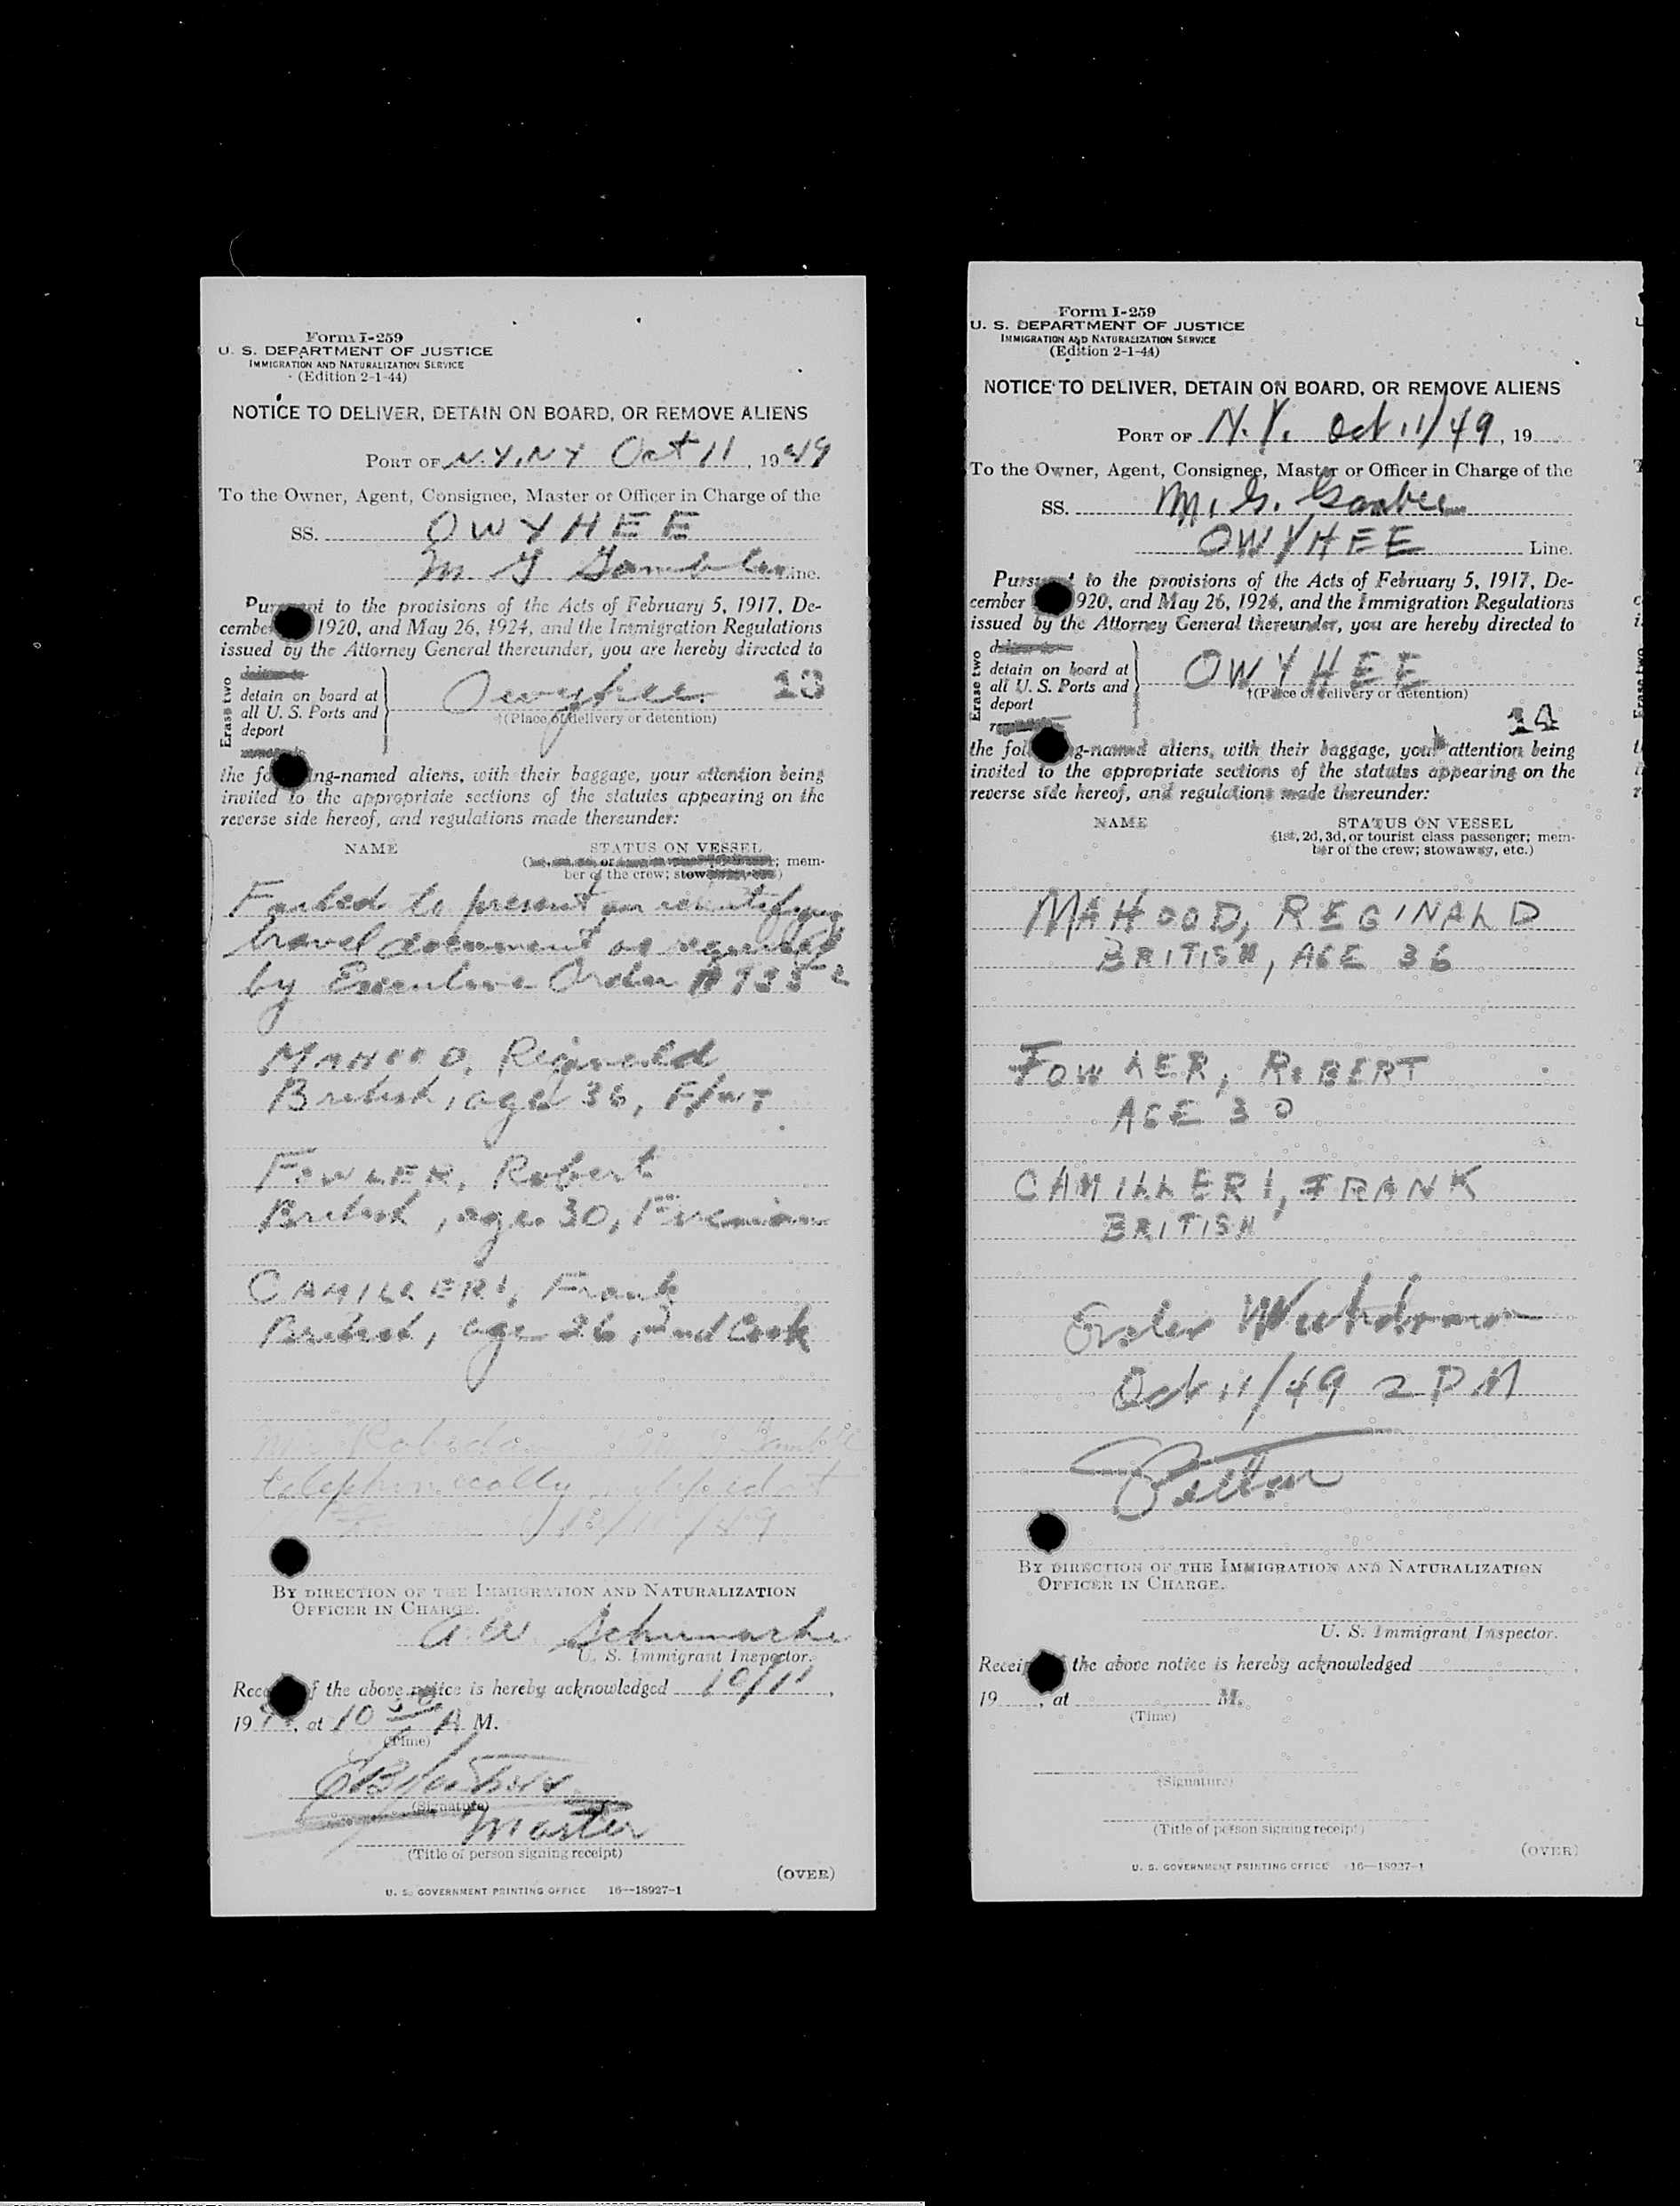 Form I-259
U. S. DEPARTMENT OF JUSTICE
IMMIGRATION AND NATURALIZATION SERVICE
(Edition 2-1-44)
NOTICE TO DELIVER, DETAIN ON BOARD, OR REMOVE ALIENS
PORT OF N.Y. N Y Oct 11, 1949
To the Owner, Agent, Consignee, Master or Officer in Charge of the
SS. OWYHEE
M G Line.
to the provisions of the Acts of February 5, 1917, De-
1920, and May 26, 1924, and the Immigration Regulations
issued by the Attorney General thereunder, you are hereby directed to
Erase two
detain on board at
all U. S. Ports and
deport
Owyhee. 13
†(Place of delivery or detention)
the ing-named aliens, with their baggage, your attention being
invited to the appropriate sections of the statutes appearing on the
reverse side hereof, and regulations made thereunder:
NAME STATUS ON VESSEL
or ; mem-
ber of the crew; )
Failed to present an identifying
travel document as required
by Executive Order
MAHOOD, Reginald
British, age 36, F/WT
FOWLER, Robert
British, age 30, Fireman
CAMILLERI, Frank
British, age 26, 2nd Cook
telephonically
BY DIRECTION OF THE IMMIGRATION AND NATURALIZATION
OFFICER IN CHARGE.
A. W.
U. S. Immigrant Inspector.
of the above notice is hereby acknowledged 10/11,
19 , at 10 30 A M.
(Time)
(Signature)
Master
(Title of person signing receipt)
(OVER)
U. S. GOVERNMENT PRINTING OFFICE 16—18927-1
Form I-259
U. S. DEPARTMENT OF JUSTICE
IMMIGRATION AND NATURALIZATION SERVICE
(Edition 2-1-44)
NOTICE TO DELIVER, DETAIN ON BOARD, OR REMOVE ALIENS
PORT OF N.Y. Oct 11/49, 19
To the Owner, Agent, Consignee, Master or Officer in Charge of the
SS. M. G.
OWYHEE Line.
to the provisions of the Acts of February 5, 1917, De-
cember 920, and May 26, 1924, and the Immigration Regulations
issued by the Attorney General thereunder, you are hereby directed to
Erase two
detain on board at
all U. S. Ports and
deport
OWYHEE
†(Place of delivery or detention)
14
the g-named aliens, with their baggage, your attention being
invited to the appropriate sections of the statutes appearing on the
reverse side hereof, and regulations made thereunder:
NAME STATUS ON VESSEL
(1st, 2d, 3d, or tourist class passenger; mem-
ber of the crew; stowaway, etc.)
MAHOOD, REGINALD
BRITISH, AGE 36
FOWLER, ROBERT
AGE 30
CAMILLERI, FRANK
BRITISH
Order Withdrawn
Oct 11/49 2 PM
BY DIRECTION OF THE IMMIGRATION AND NATURALIZATION
OFFICER IN CHARGE.
U. S. Immigrant Inspector.
the above notice is hereby acknowledged
19 , at M.
(Time)
(Signature)
(Title of person signing receipt)
(OVER)
U. S. GOVERNMENT PRINTING OFFICE 16—18927-1